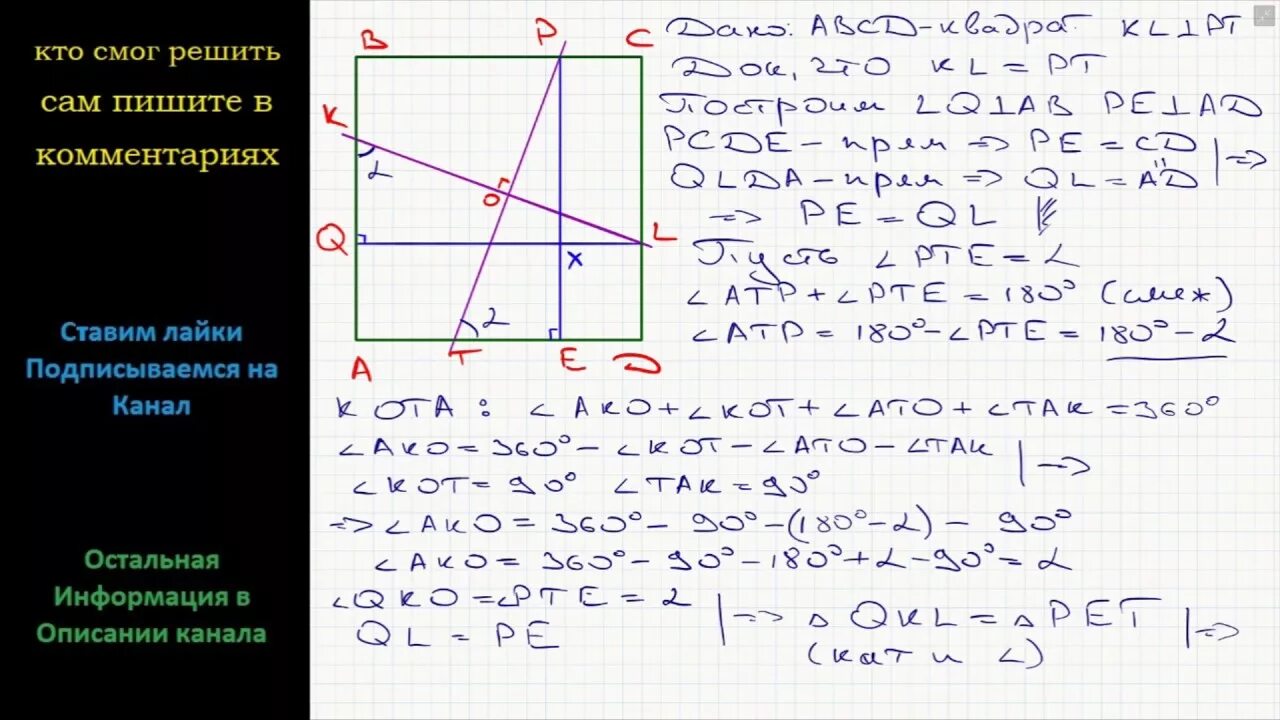 кто смог решить
сам пишите в
комментариях
Ставим лайки
Подписываемся на
Канал
Остальная
Информация в
Описании канала
B
P
C
K
α
O
Q
L
X
α
A
T
E
D
Дано: ABCD – квадрат KL⊥PT
Док, что KL = PT
Построим LQ⊥AB PE⊥AD
PCDE – прям => PE = CD
QLDA – прям => QL = AD | =>
=> PE = QL
Пусть ∠PTE = α
∠ATP + ∠PTE = 180° (смеж)
∠ATP = 180° – ∠PTE = 180° – α
KOTA : ∠AKO + ∠KOT + ∠ATO + ∠TAK = 360°
∠AKO = 360° – ∠KOT – ∠ATO – ∠TAK | =>
∠KOT = 90° ∠TAK = 90°
=> ∠AKO = 360° – 90° – (180° – α) – 90°
∠AKO = 360° – 90° – 180° + α – 90° = α
∠QKO = ∠PTE = α
QL = PE | => △QKL = △PET | =>
(кат и ∠)